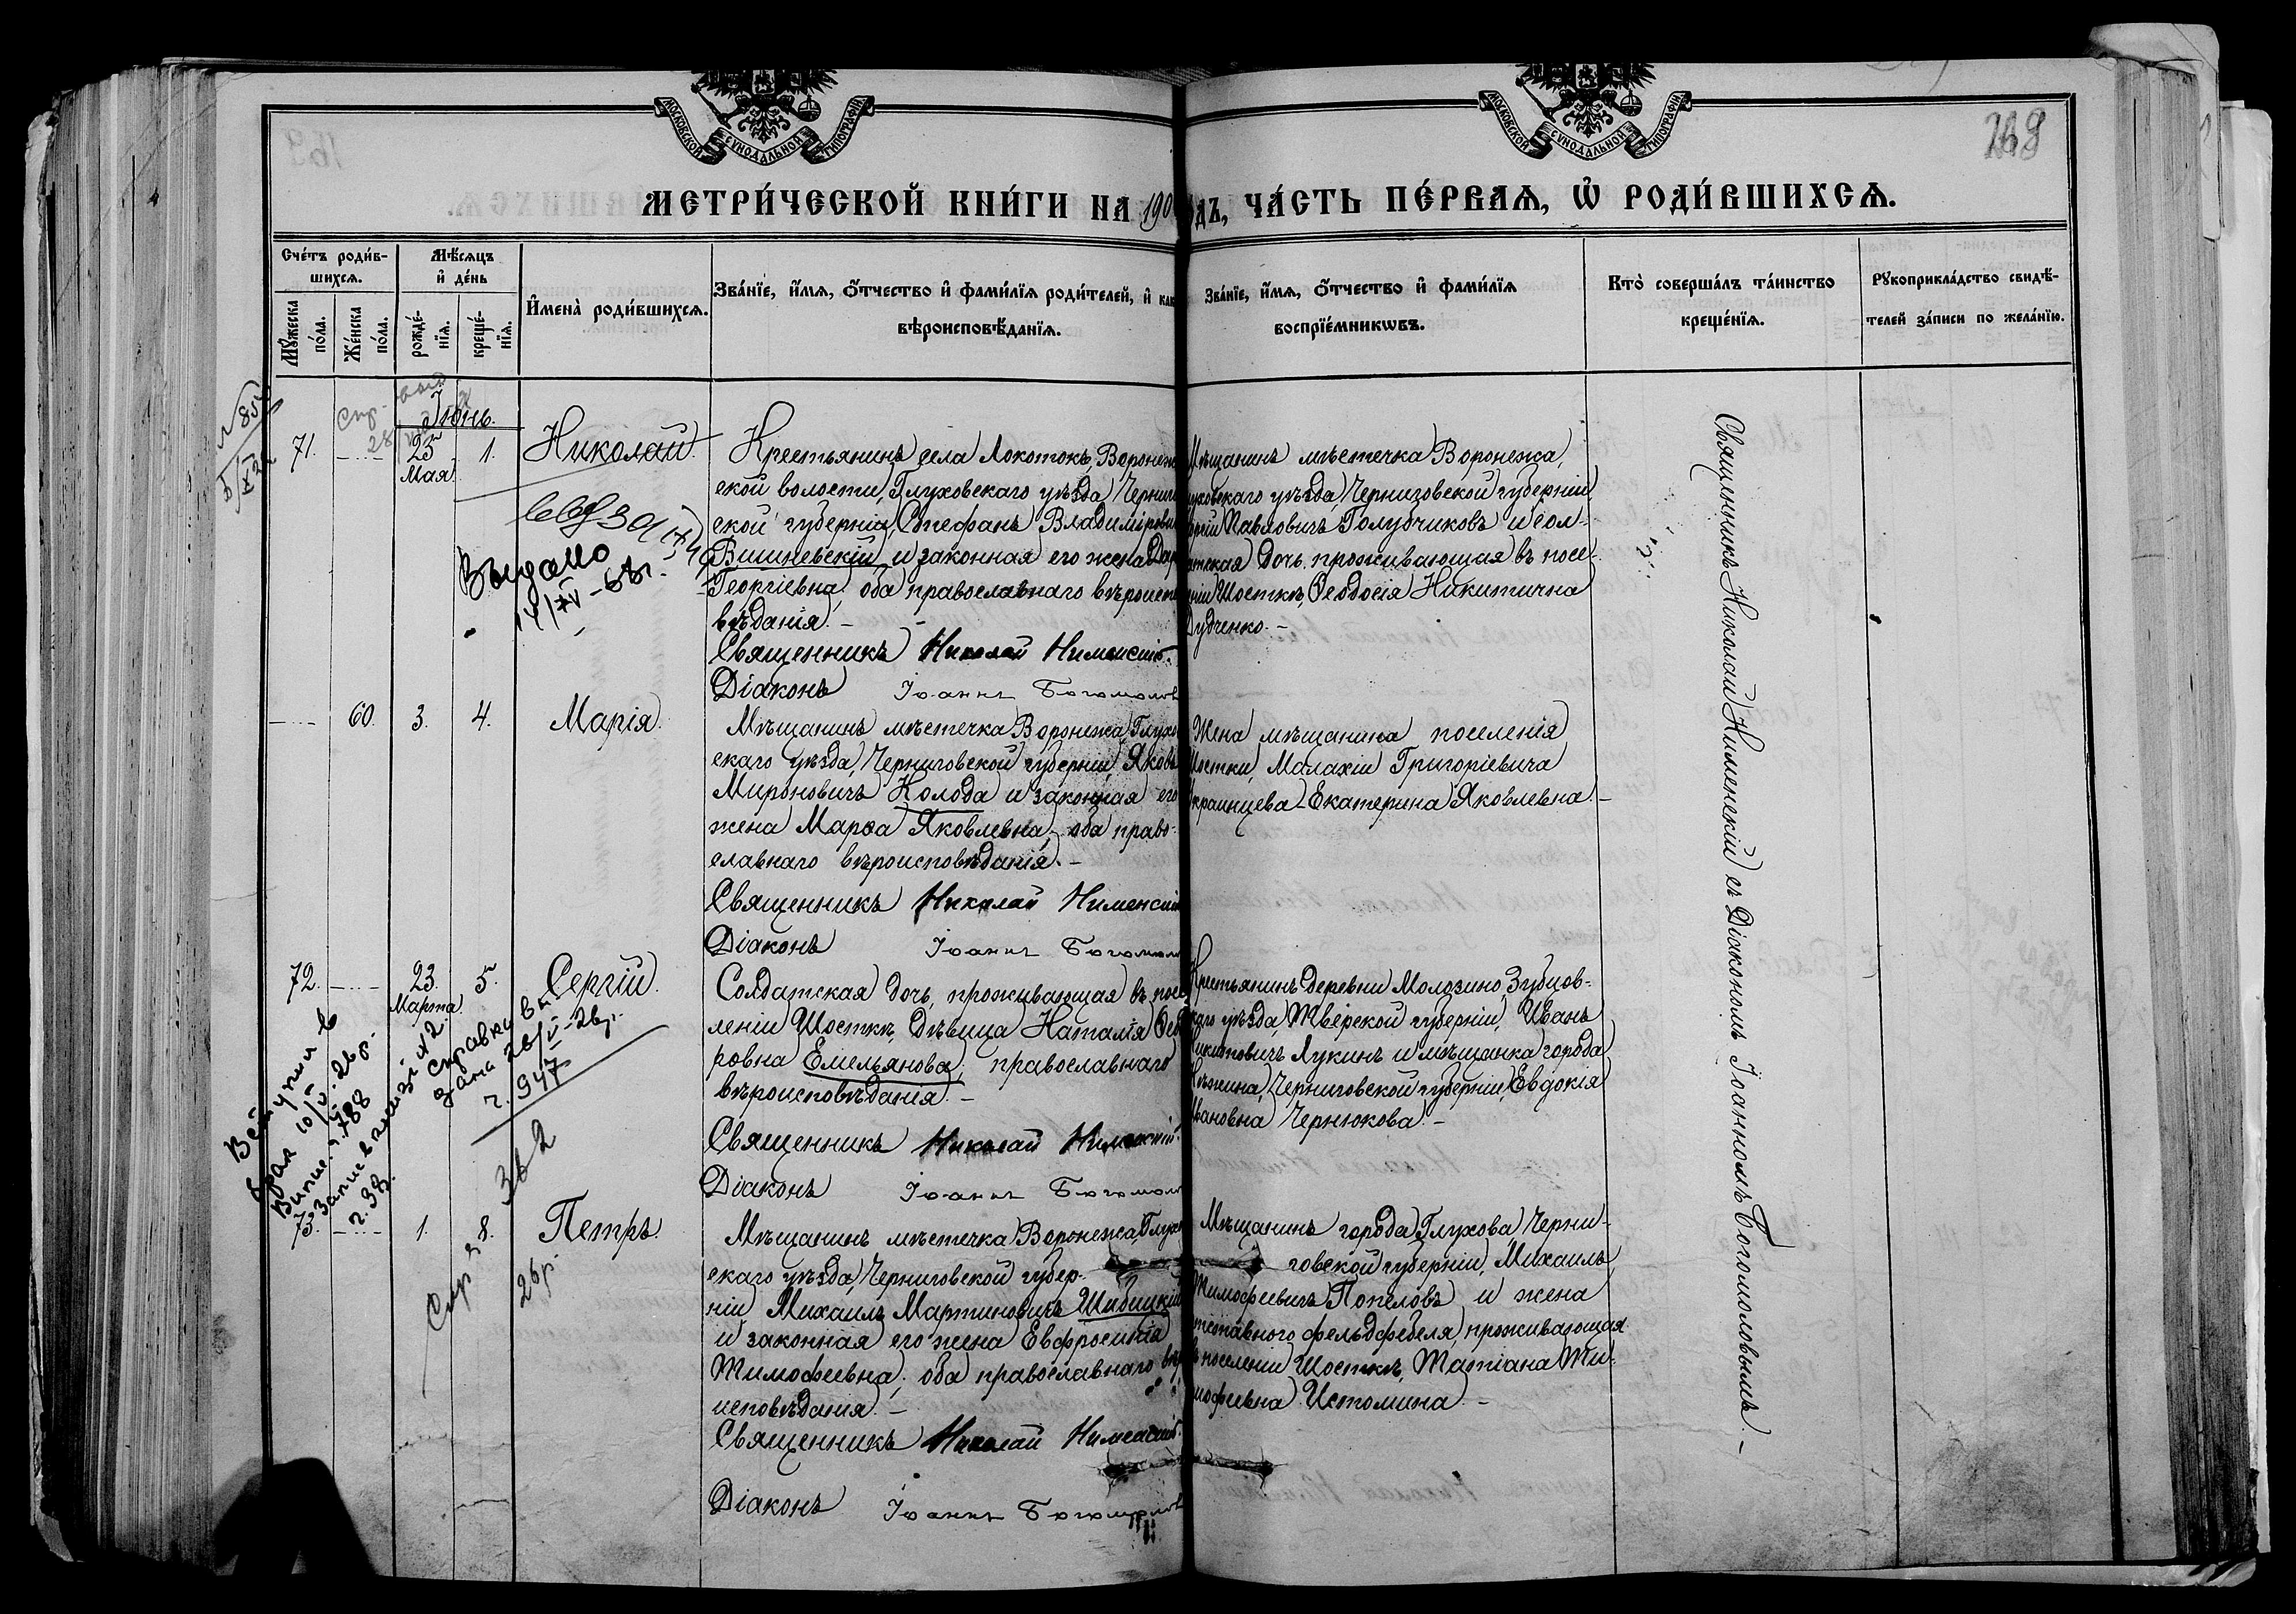 МОСКОВСКОЙ СѴНОДАЛЬНОЙ ТИПОГРАФІИ
МОСКОВСКОЙ СѴНОДАЛЬНОЙ ТИПОГРАФІИ
МЕТРИ́ЧЕСКОЙ КНИ́ГИ НА 190
ДЪ, ЧА́СТЬ ПЕ́РВАѦ, Ѡ҆ РОДИ́ВШИХСѦ.
Сче́тъ роди́в-
шихсѧ.
Мꙋ́жеска по́ла.
Же́нска по́ла.
Мѣ́сѧцъ
и҆ де́нь
рожде́-
нїѧ.
креще́-
нїѧ.
И҆мена̀ роди́вшихсѧ.
Зва́нїе, и҆́мѧ, ѻ҆́тчество и҆ фами́лїѧ роди́телей, и҆ как
вѣроисповѣ́данїѧ.
Зва́нїе, и҆́мѧ, ѻ҆́тчество и҆ фами́лїѧ
воспрїе́мникѡвъ.
Кто̀ соверша́лъ та́инство
креще́нїѧ.
Рꙋкоприкла́дство свидѣ́-
телей за́писи по жела́нїю.
Іюнь.
71. 25 Мая. 1. Николай.
Крестьянинъ села Локотокъ, Воронеж
ской волости, Глуховскаго уѣзда, Черниго
ской губерніи, Стефанъ Владиміровичъ
Вишневскій и законная его жена Дар
Георгіевна, оба православнаго вѣроиспо
вѣданія. –
Священникъ Николай Нименскій.
Діаконъ Іоаннъ Богомолов
Мѣщанинъ мѣстечка Воронежа,
уховскаго уѣзда, Черниговской губерніи,
Павловичъ Голубчиковъ и сол-
атская дочь, проживающая въ посе-
ніи Шосткѣ, Ѳеодосія Никитична
Дудченко. –
Выдано
14/IV – 53г.
60. 3. 4. Марія.
Мѣщанинъ мѣстечка Воронежа, Глухов
скаго уѣзда, Черниговской губерніи, Яковъ
Мироновичъ Колода и законная его
жена Марѳа Яковлевна, оба право-
славнаго вѣроисповѣданія. –
Священникъ Николай Нименскій
Діаконъ Іоаннъ Богомолов
Жена мѣщанина поселенія
Шостки, Малахіи Григоріевича
Украинцева – Екатерина Яковлевна. –
72. 23. Марта. 5. Сергій.
Солдатская дочь, проживающая въ посе
леніи Шосткѣ, дѣвица Наталія Ѳеодо
ровна Емельянова, православнаго
вѣроисповѣданія. –
Священникъ Николай Нименскій.
Діаконъ Іоаннъ Богомолов
Крестьянинъ деревни Молозино, Зубцов-
каго уѣзда, Тверской губерніи, Иванъ
Никитовичъ Лукинъ и мѣщанка города
Нѣжина, Черниговской губерніи, Евдокія
Ивановна Чернюкова. –
Вступил в
брак 10/V. 26р.
Випис. ч. 788
Запис в книзі №2
ч. 38.
справку ви
дана 26/V – 26р.
ч. 947
362
73. 1. 8. Петръ.
Мѣщанинъ мѣстечка Воронежа, Глухов
скаго уѣзда, Черниговской губер-
ніи Михаилъ Мартиновичъ Шибицкій
и законная его жена Евфросинія
Тимоѳеевна, оба православнаго вѣро
исповѣданія. –
Священникъ Николай Нименскій.
Діаконъ Іоаннъ Богомолов
Мѣщанинъ города Глухова, Черни-
говской губерніи, Михаилъ
Тимофеевичъ Попеловъ и жена
отставного фельдфебеля, проживающая
въ поселеніи Шосткѣ, Татіана Ти-
мофеевна Истомина. –
26р.
Священникъ Николай Нименскій съ Діакономъ Іоанномъ Богомоловымъ. –